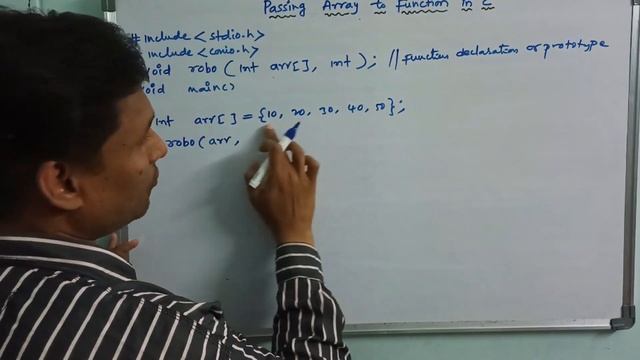 Passing Array to Function in C
#include<stdio.h>
include<conio.h>
void robo(int arr[], int); //Function declaration or prototype
void main()
int arr[] = {10, 20, 30, 40, 50};
robo(arr,